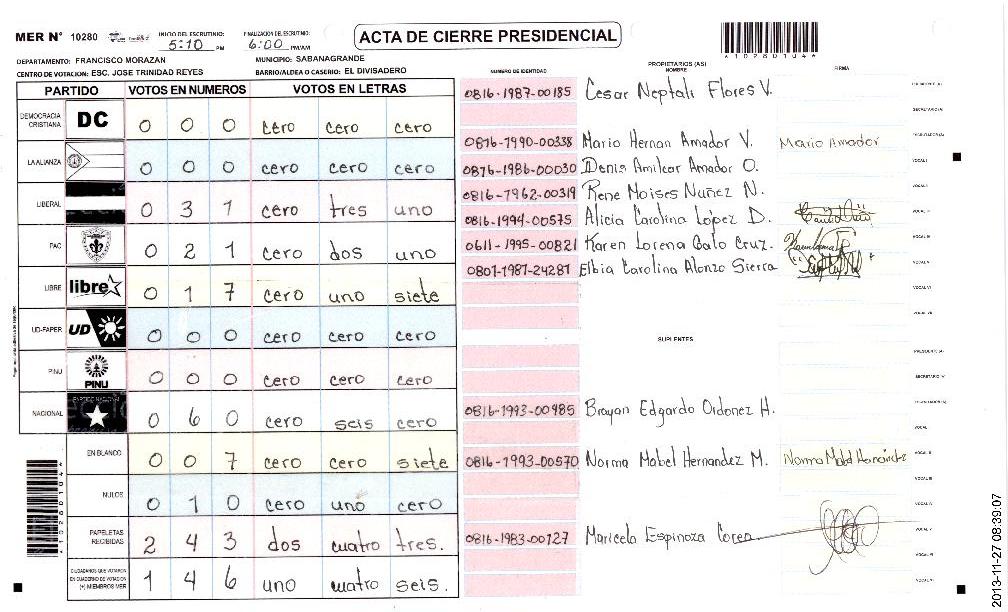 MER N° 10280
INICIO DEL ESCRUTINIO: 5:10 PM
FINALIZACION DEL ESCRUTINIO: 6:00 PM/AM
ACTA DE CIERRE PRESIDENCIAL
*10280104*
DEPARTAMENTO: FRANCISCO MORAZAN
MUNICIPIO: SABANAGRANDE
CENTRO DE VOTACION: ESC. JOSE TRINIDAD REYES
BARRIO/ALDEA O CASERIO: EL DIVISADERO
PARTIDO VOTOS EN NUMEROS VOTOS EN LETRAS
DEMOCRACIA CRISTIANA DC 0 0 0 cero cero cero
LA ALIANZA 0 0 0 cero cero cero
LIBERAL 0 3 1 cero tres uno
PAC 0 2 1 cero dos uno
LIBRE libre 0 1 7 cero uno siete
UD-FAPER UD 0 0 0 cero cero cero
PINU PINU 0 0 0 cero cero cero
NACIONAL 0 6 0 cero seis cero
EN BLANCO 0 0 7 cero cero siete
NULOS 0 1 0 cero uno cero
PAPELETAS RECIBIDAS 2 4 3 dos cuatro tres.
CIUDADANOS QUE VOTARON EN CUADERNO DE VOTACION (+) MIEMBROS MER 1 4 6 uno cuatro seis.
*10280104*
NUMERO DE IDENTIDAD
PROPIETARIOS (AS)
NOMBRE
FIRMA
0816-1987-00185 Cesar Neptali Flores V.
PRESIDENTE (A)
SECRETARIO (A)
0816-1990-00338 Mario Hernan Amador V. Mario Amador
ESCRUTADOR (A)
0816-1986-00030 Denis Amilcar Amador O. VOCAL I
0816-1962-00319 Rene Moises Nuñez N. VOCAL II
0816-1994-00575 Alicia Carolina López D.
0611-1995-00821 Karen Lorena Calo Cruz.
0801-1987-24281 Elbia Carolina Alonzo Sierra
SUPLENTES
PRESIDENTE (A)
SECRETARIO (A)
0816-1993-00485 Brayan Edgardo Ordonez H.
0816-1993-00570 Norma Mabel Hernandez M. Norma Mabel Hernández
0816-1983-00127 Maricela Espinoza
2013-11-27 08:39:07